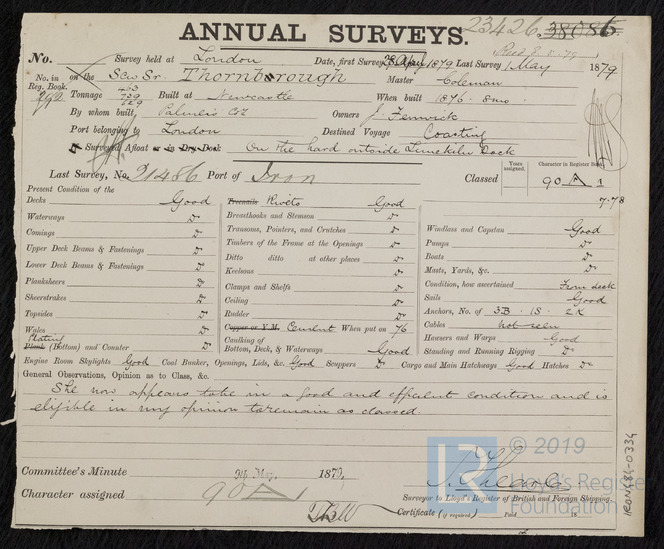 ANNUAL SURVEYS.
23426 38086
Recd 8.5.79
No. Survey held at London Date, first Survey 28 Apr 1879 Last Survey 1 May 1879
No. in Reg. Book. on the Scw Sr. Thornborough Master Coleman
292 Tonnage 463 739 729 Built at Newcastle When built 1876. 8mo.
By whom built Palmers Co. Owners J. Fenwick
Port belonging to London Destined Voyage Coasting
If Surveyed Afloat or in Dry Dock On the hard outside Limekiln Dock
Last Survey, No. 21486 Port of Iron Classed Years assigned. Character in Register Book. 90 A 1
7.78
Present Condition of the
Decks Good
Waterways Do
Comings Do
Upper Deck Beams & Fastenings Do
Lower Deck Beams & Fastenings Do
Planksheers Do
Sheerstrakes Do
Topsides Do
Wales Do
Plating
Plank (Bottom) and Counter Do
Treenails Rivets Good
Breasthooks and Stemson Do
Transoms, Pointers, and Crutches Do
Timbers of the Frame at the Openings Do
Ditto ditto at other places Do
Keelsons Do
Clamps and Shelfs Do
Ceiling Do
Rudder Do
Copper or Y.M. Cement When put on 76
Caulking of
Bottom, Deck, & Waterways Good
Windlass and Capstan Good
Pumps Do
Boats Do
Masts, Yards, &c. Do
Condition, how ascertained From deck
Sails Good
Anchors, No. of 3B. 1S. 2K
Cables not seen
Hawsers and Warps Good
Standing and Running Rigging Do
Engine Room Skylights Good Coal Bunker, Openings, Lids, &c. Good Scuppers Do Cargo and Main Hatchways Good Hatches Do
General Observations, Opinion as to Class, &c.
She now appears to be in a good and efficient condition and is
eligible in my opinion to remain as classed.
Committee's Minute 9th May, 1879,
Character assigned 90 A 1
Surveyor to Lloyd's Register of British and Foreign Shipping.
Certificate (if required) Paid 18
IRON484-0334
© 2019
Lloyd's Register
Foundation